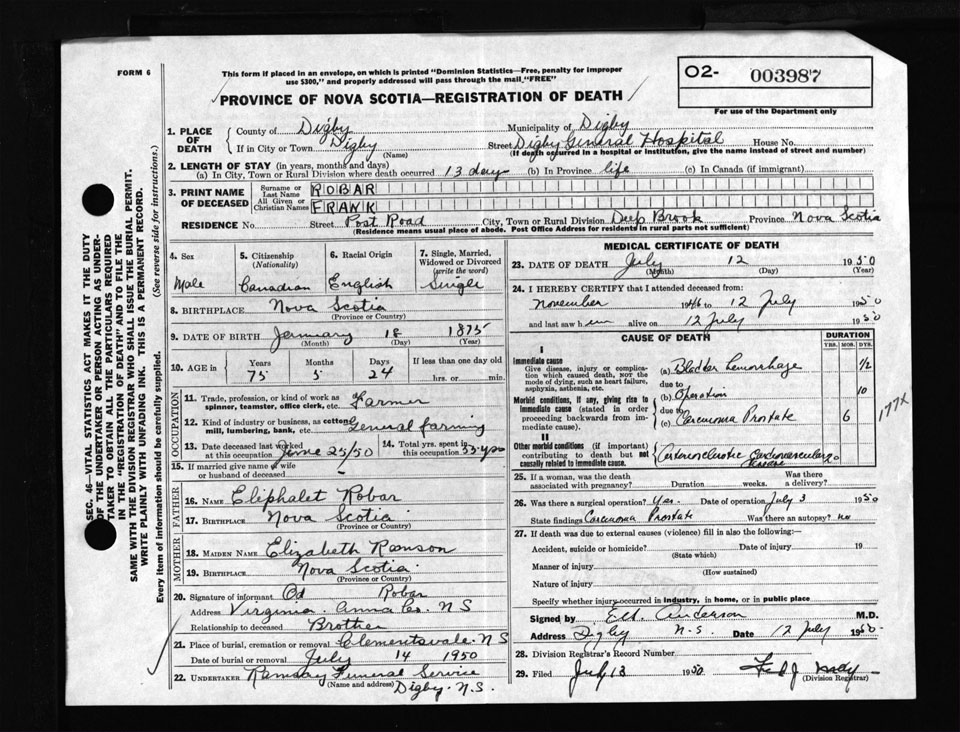 FORM 6
This form if placed in an envelope, on which is printed "Dominion Statistics—Free, penalty for improper
use $300," and properly addressed will pass through the mail "FREE"
PROVINCE OF NOVA SCOTIA—REGISTRATION OF DEATH
O2- 003987
For use of the Department only
SEC. 46—VITAL STATISTICS ACT MAKES IT THE DUTY
OF THE UNDERTAKER OR PERSON ACTING AS UNDER-
TAKER TO OBTAIN ALL THE PARTICULARS REQUIRED
IN THE "REGISTRATION OF DEATH" AND TO FILE THE
SAME WITH THE DIVISION REGISTRAR WHO SHALL ISSUE THE BURIAL PERMIT.
WRITE PLAINLY WITH UNFADING INK. THIS IS A PERMANENT RECORD.
Every item of information should be carefully supplied. (See reverse side for instructions.)
1. PLACE OF DEATH
County of Digby Municipality of Digby
If in City or Town Digby (Name) Street Digby General Hospital House No.
(If death occurred in a hospital or institution, give the name instead of street and number)
2. LENGTH OF STAY (in years, months and days)
(a) In City, Town or Rural Division where death occurred 13 days (b) In Province life (c) In Canada (if immigrant)
3. PRINT NAME OF DECEASED
Surname or Last Name ROBAR
All Given or Christian Names FRANK
RESIDENCE No. Street Post Road City, Town or Rural Division Deep Brook Province Nova Scotia
(Residence means usual place of abode. Post Office Address for residents in rural parts not sufficient)
4. Sex Male
5. Citizenship (Nationality) Canadian
6. Racial Origin English
7. Single, Married, Widowed or Divorced (write the word) Single
8. BIRTHPLACE Nova Scotia
(Province or Country)
9. DATE OF BIRTH January 18 1875
(Month) (Day) (Year)
10. AGE in Years Months Days If less than one day old
75 5 24 hrs. or min.
OCCUPATION
11. Trade, profession, or kind of work as
spinner, teamster, office clerk, etc. Farmer
12. Kind of industry or business, as cotton
mill, lumbering, bank, etc. General farming
13. Date deceased last worked
at this occupation June 25/50
14. Total yrs. spent in
this occupation 55 yrs
15. If married give name of wife
or husband of deceased
FATHER
16. NAME Eliphalet Robar
17. BIRTHPLACE Nova Scotia
(Province or Country)
MOTHER
18. MAIDEN NAME Elizabeth Ramson
19. BIRTHPLACE Nova Scotia
(Province or Country)
20. Signature of informant Robar
Address Virginia. Anna Co. N S
Relationship to deceased Brother
21. Place of burial, cremation or removal Clementsvale. N S
Date of burial or removal July 14 1950
22. UNDERTAKER Ramsay Funeral Service
(Name and address) Digby. N.S.
MEDICAL CERTIFICATE OF DEATH
23. DATE OF DEATH July 12 1950
(Month) (Day) (Year)
24. I HEREBY CERTIFY that I attended deceased from:
November 1946 to 12 July 1950
and last saw him alive on 12 July 1950
CAUSE OF DEATH DURATION
YRS. MOS. DYS.
I
Immediate cause
Give disease, injury or complica-
tion which caused death, not the
mode of dying, such as heart failure,
asphyxia, asthenia, etc.
(a) Bladder hemorrhage 1/2
due to
Morbid conditions, if any, giving rise to
immediate cause (stated in order
proceeding backwards from im-
mediate cause).
(b) Operation 10
due to
(c) Carcinoma Prostate 6
177x
II
Other morbid conditions (if important)
contributing to death but not
causally related to immediate cause.
Cardiovascular disease
25. If a woman, was the death
associated with pregnancy? Duration weeks. Was there a delivery?
26. Was there a surgical operation? Yes. Date of operation July 3 1950
State findings Carcinoma Prostate Was there an autopsy? no
27. If death was due to external causes (violence) fill in also the following:—
Accident, suicide or homicide? Date of injury 19
(State which)
Manner of injury
(How sustained)
Nature of injury
Specify whether injury occurred in industry, in home, or in public place
Signed by Anderson M.D.
Address Digby N.S. Date 12 July 1950
28. Division Registrar's Record Number
29. Filed July 13 1950
(Division Registrar)